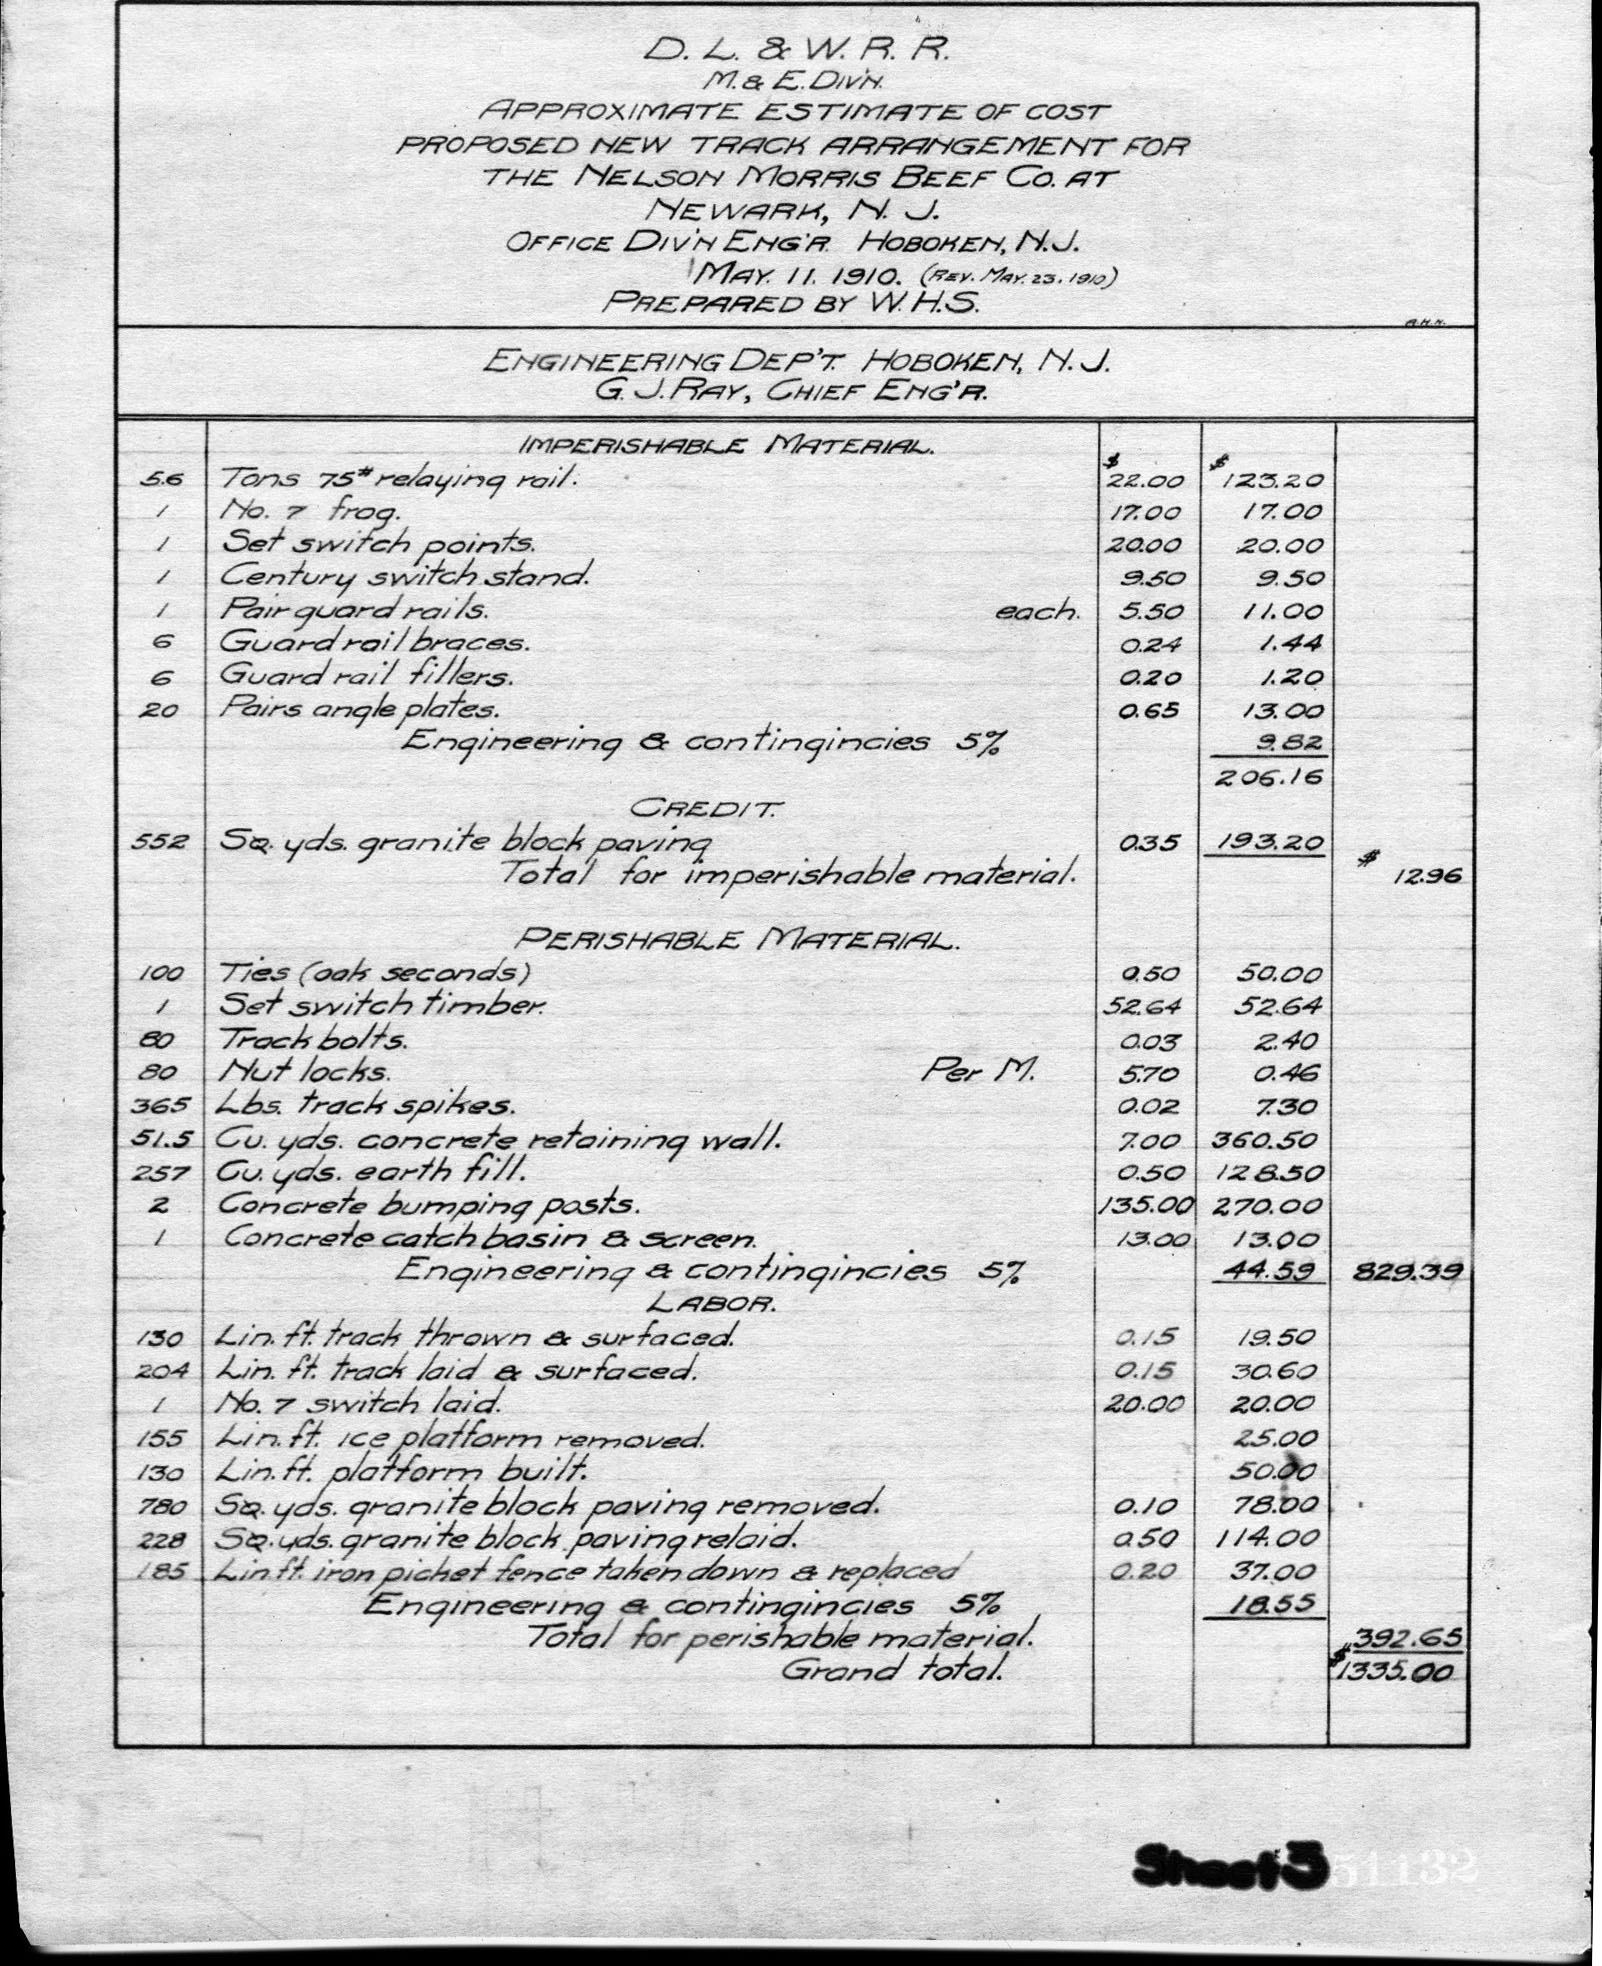 D. L. & W. R. R.
M. & E. Div'n.
Approximate Estimate of Cost
Proposed New Track Arrangement for
The Nelson Morris Beef Co. at
Newark, N. J.
Office Div'n Eng'r. Hoboken, N.J.
May. 11. 1910. (Rev. May. 23. 1910)
Prepared by W.H.S.
Engineering Dep't. Hoboken, N. J.
G. J. Ray, Chief Eng'r.
Imperishable Material.
5.6 Tons 75# relaying rail. $ 22.00 $ 123.20
1 No. 7 frog. 17.00 17.00
1 Set switch points. 20.00 20.00
1 Century switch stand. 9.50 9.50
1 Pair guard rails. each. 5.50 11.00
6 Guard rail braces. 0.24 1.44
6 Guard rail fillers. 0.20 1.20
20 Pairs angle plates. 0.65 13.00
Engineering & contingincies 5% 9.82
206.16
Credit.
552 Sq. yds. granite block paving 0.35 193.20
Total for imperishable material. $ 12.96
Perishable Material.
100 Ties (oak seconds) 0.50 50.00
1 Set switch timber. 52.64 52.64
80 Track bolts. 0.03 2.40
80 Nut locks. Per M. 5.70 0.46
365 Lbs. track spikes. 0.02 7.30
51.5 Cu. yds. concrete retaining wall. 7.00 360.50
257 Cu. yds. earth fill. 0.50 128.50
2 Concrete bumping posts. 135.00 270.00
1 Concrete catch basin & screen. 13.00 13.00
Engineering & contingincies 5% 44.59 829.39
Labor.
130 Lin. ft. track thrown & surfaced. 0.15 19.50
204 Lin. ft. track laid & surfaced. 0.15 30.60
1 No. 7 switch laid. 20.00 20.00
155 Lin. ft. ice platform removed. 25.00
130 Lin. ft. platform built. 50.00
780 Sq. yds. granite block paving removed. 0.10 78.00
228 Sq. yds. granite block paving relaid. 0.50 114.00
185 Lin. ft. iron picket fence taken down & replaced 0.20 37.00
Engineering & contingincies 5% 18.55
Total for perishable material. 392.65
Grand total. $1335.00
Sheet 3 51132